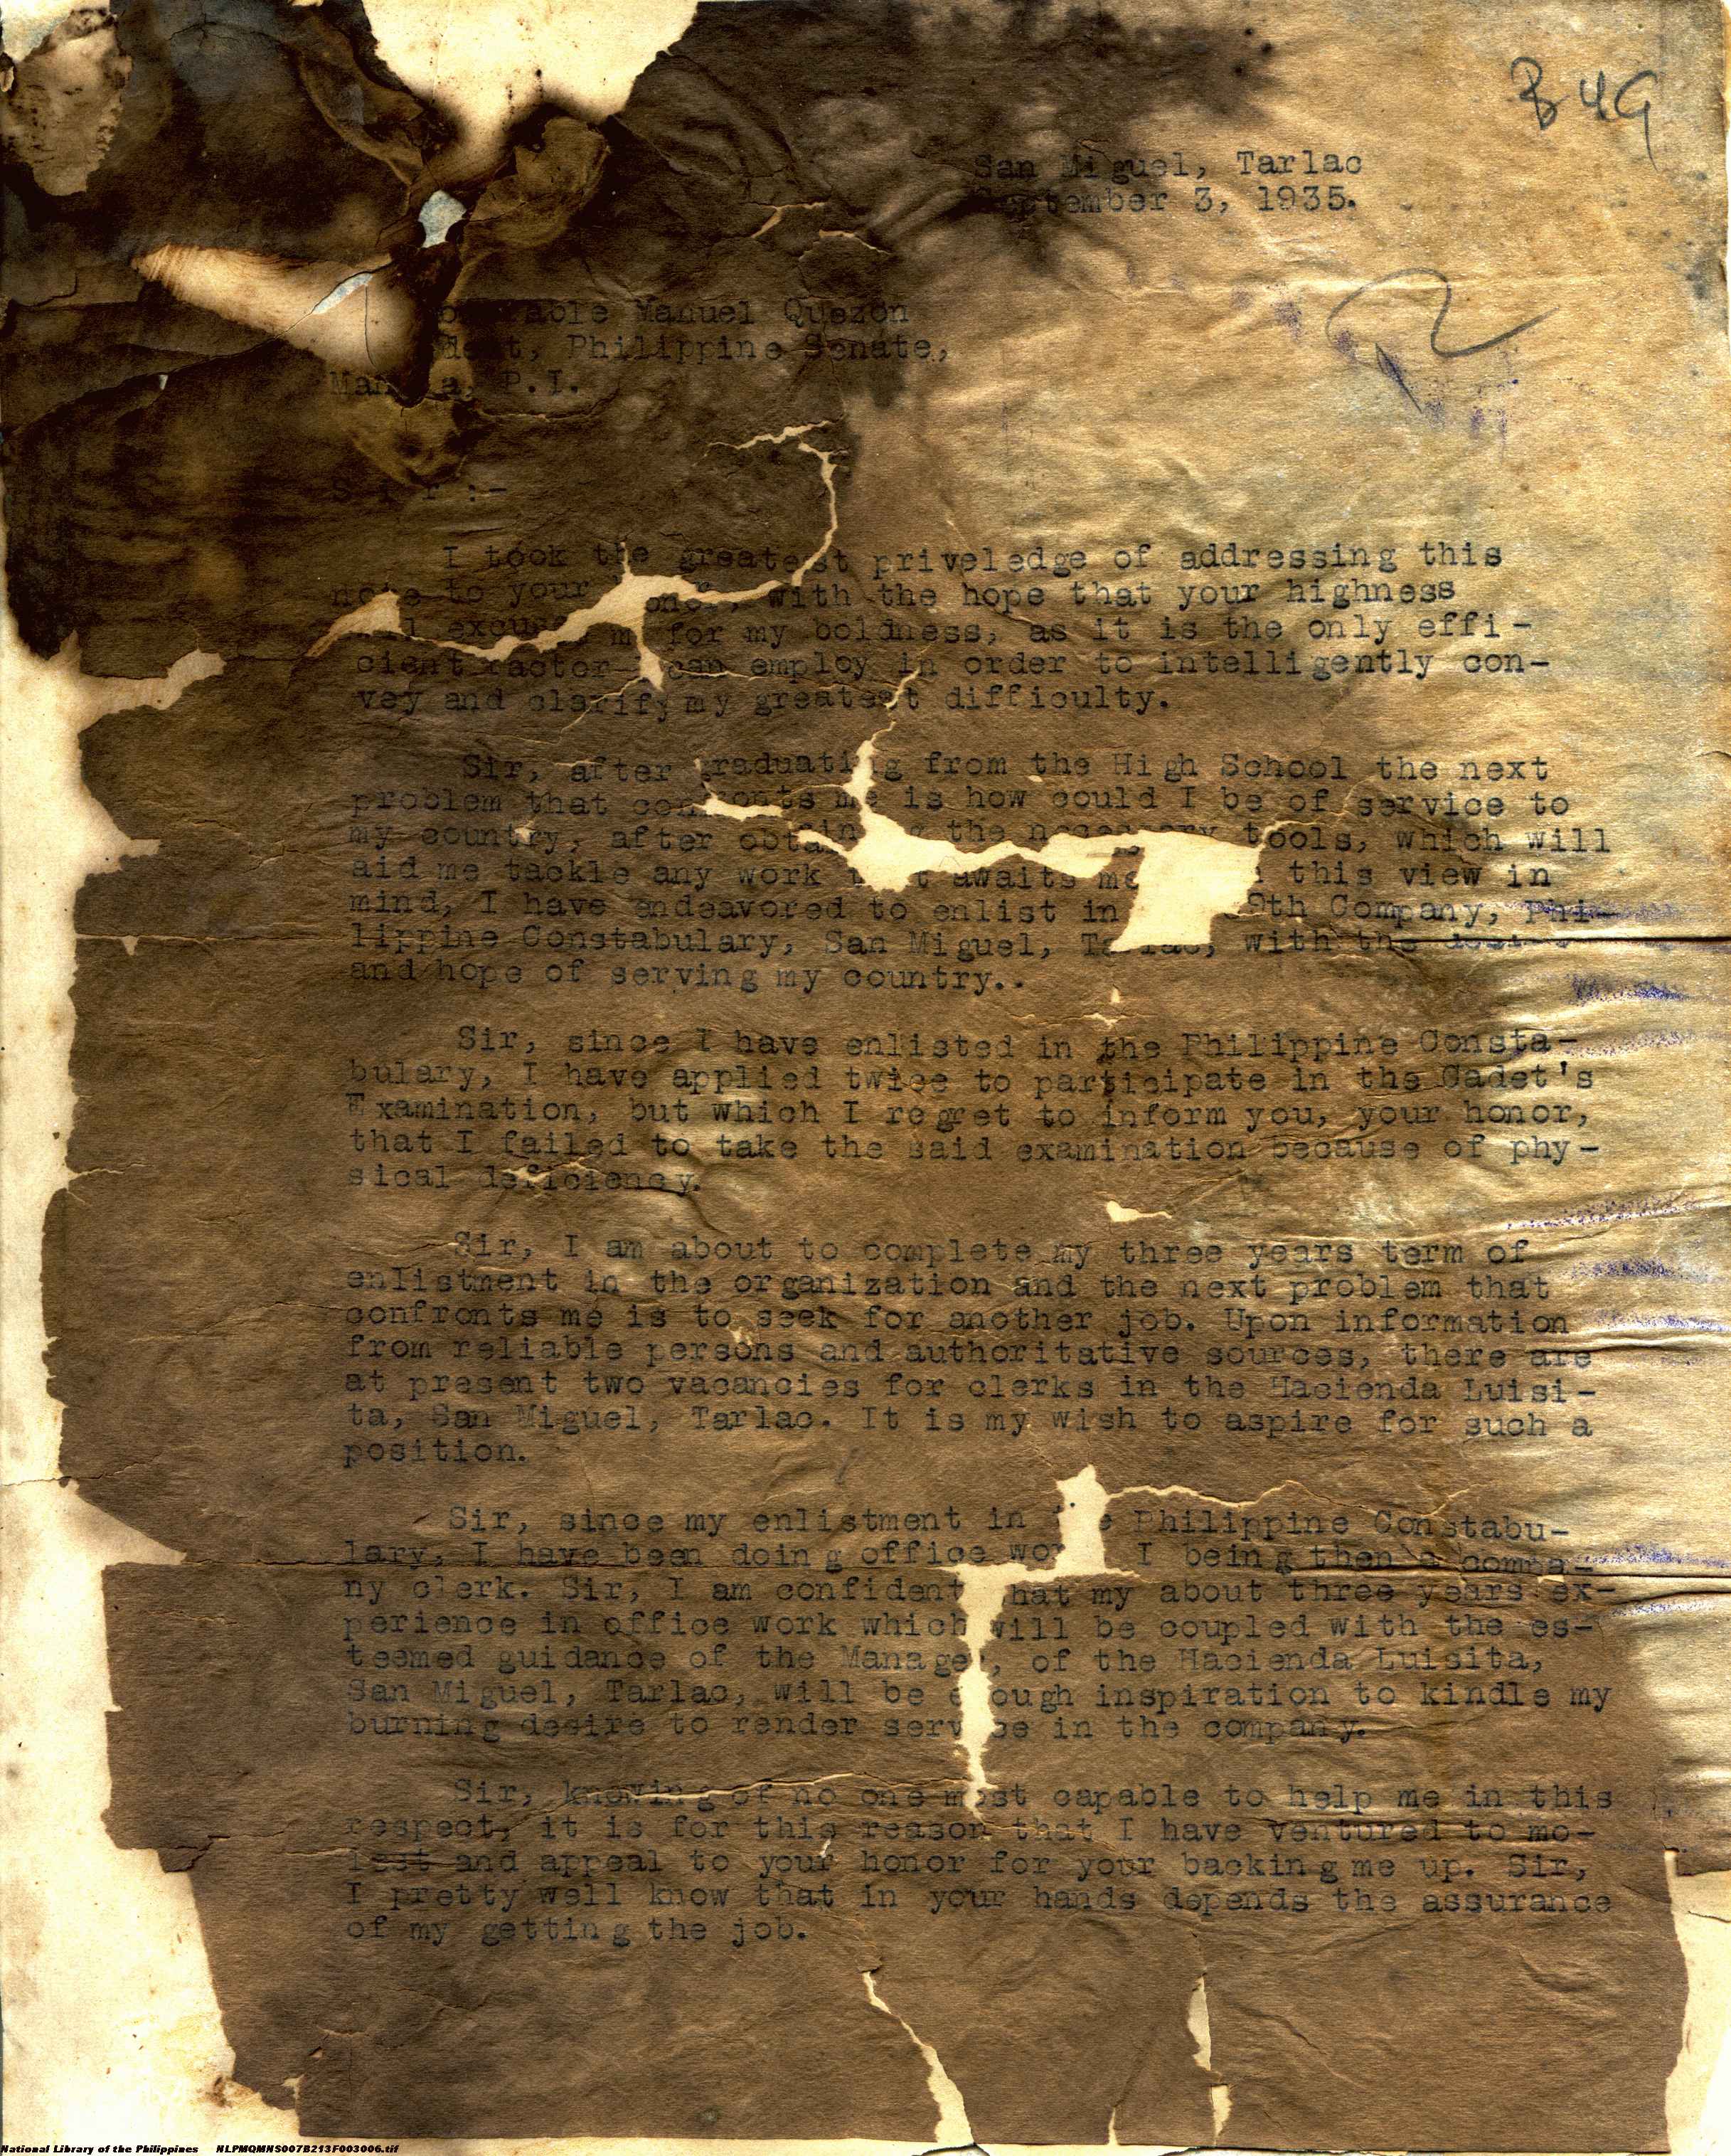 B 49
San Miguel, Tarlac
September 3, 1935.
Manuel Quezon
Philippine Senate,
P.I.
S i r :-
I took the greatest priveledge of addressing this
note to your honor, with the hope that your highness
excuse me for my boldness, as it is the only effi-
cient factor I can employ in order to intelligently con-
vey and clarify my greatest difficulty.
Sir, after graduating from the High School the next
problem that confronts me is how could I be of service to
my country, after obtaining the necessary tools, which will
aid me tackle any work that awaits me. this view in
mind, I have endeavored to enlist in 9th Company, Phi-
lippine Constabulary, San Miguel, Tarlac, with the
and hope of serving my country..
Sir, since I have enlisted in the Philippine Consta-
bulary, I have applied twice to participate in the Cadet's
Examination, but which I regret to inform you, your honor,
that I failed to take the said examination because of phy-
sical deficiency.
Sir, I am about to complete my three years term of
enlistment in the organization and the next problem that
confronts me is to seek for another job. Upon information
from reliable persons and authoritative sources, there are
at present two vacancies for clerks in the Hacienda Luisi-
ta, San Miguel, Tarlac. It is my wish to aspire for such a
position.
Sir, since my enlistment in the Philippine Constabu-
lary, I have been doing office work I being then a compa-
ny clerk. Sir, I am confident that my about three years ex-
perience in office work which will be coupled with the es-
teemed guidance of the Manager, of the Hacienda Luisita,
San Miguel, Tarlac, will be enough inspiration to kindle my
burning desire to render service in the company.
Sir, knowing of no one most capable to help me in this
respect, it is for this reason that I have ventured to mo-
lest and appeal to your honor for your backing me up. Sir,
I pretty well know that in your hands depends the assurance
of my getting the job.
National Library of the Philippines NLPMQMNS007B213F003006.tif